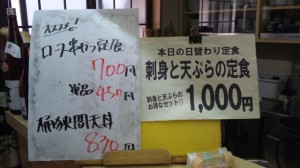 オススメ!
ロースキャベツ定食
700円
単品450円
桶
天丼
870円
本日の日替わり定食
刺身と天ぷらの定食
刺身と天ぷらの
お得なセット!!
1,000円